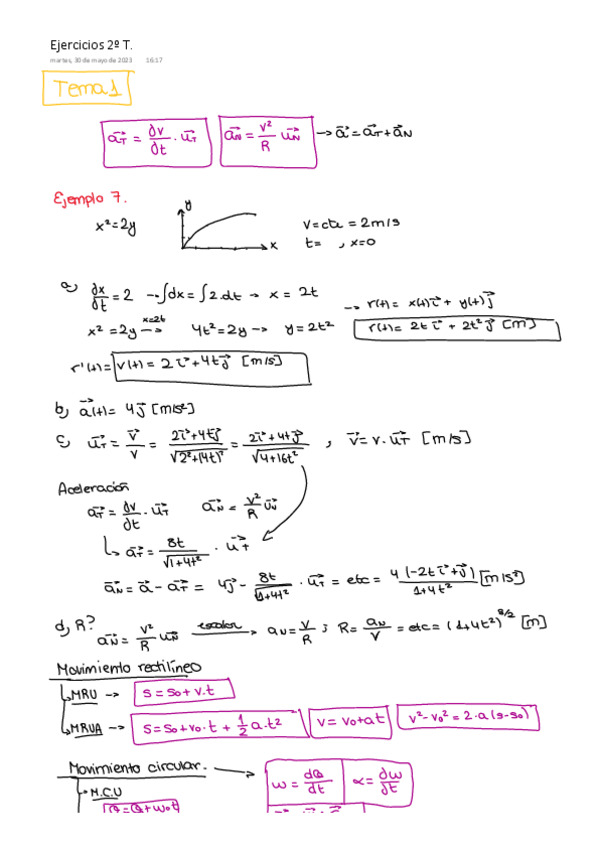 Ejercicios 2º T.
martes, 30 de mayo de 2023 16:17
Tema 1
a⃗T = ∂v/∂t · u⃗T   a⃗N = v²/R u⃗N → a⃗ = a⃗T + a⃗N
Ejemplo 7.
x² = 2y   y   x   v = cte = 2 m/s
t = , x = 0
a) ∂x/∂t = 2 → ∫dx = ∫2·dt → x = 2t
→ r(t) = x(t)i⃗ + y(t)j⃗
x² = 2y —x=2t→ 4t² = 2y → y = 2t²   r(t) = 2t i⃗ + 2t² j⃗ [m]
r'(t) = v(t) = 2i⃗ + 4t j⃗ [m/s]
b) a⃗(t) = 4j⃗ [m/s²]
c) u⃗T = v⃗/v = (2i⃗ + 4t j⃗)/√(2² + (4t)²) = (2i⃗ + 4t j⃗)/√(4 + 16t²) , v⃗ = v · u⃗T [m/s]
Aceleración
a⃗T = ∂v/∂t · u⃗T   a⃗N = v²/R u⃗N
↳ a⃗T = 8t/√(1+4t²) · u⃗T
a⃗N = a⃗ - a⃗T = 4j - 8t/√(1+4t²) · u⃗T = etc = 4(-2t i⃗ + j⃗)/(1+4t²) [m/s²]
d) R?
a⃗N = v²/R u⃗N —escalar→ aN = v/R ; R = aN/v = etc = (1+4t²)^(3/2) [m]
Movimiento rectilíneo
MRU → s = s₀ + v·t
MRUA → s = s₀ + v₀·t + ½ a·t²   v = v₀ + at   v² - v₀² = 2·a(s-s₀)
Movimiento circular. → ω = dθ/dt   α = ∂ω/∂t
M.C.U
θ = θ + ω₀t